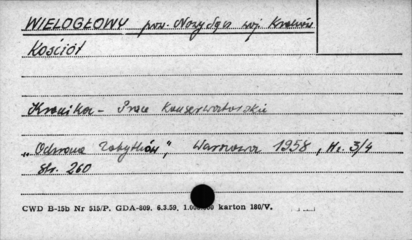 WIELOGŁOWY pow. Nowy Sącz woj. Kraków
Kościół
Kronika - Prace konserwatorskie
„Ochrona Zabytków", Warszawa 1958, Nr. 3/4
str. 260
CWD B-15b Nr 515/P. GDA-809. 6.3.59. karton 180/V.